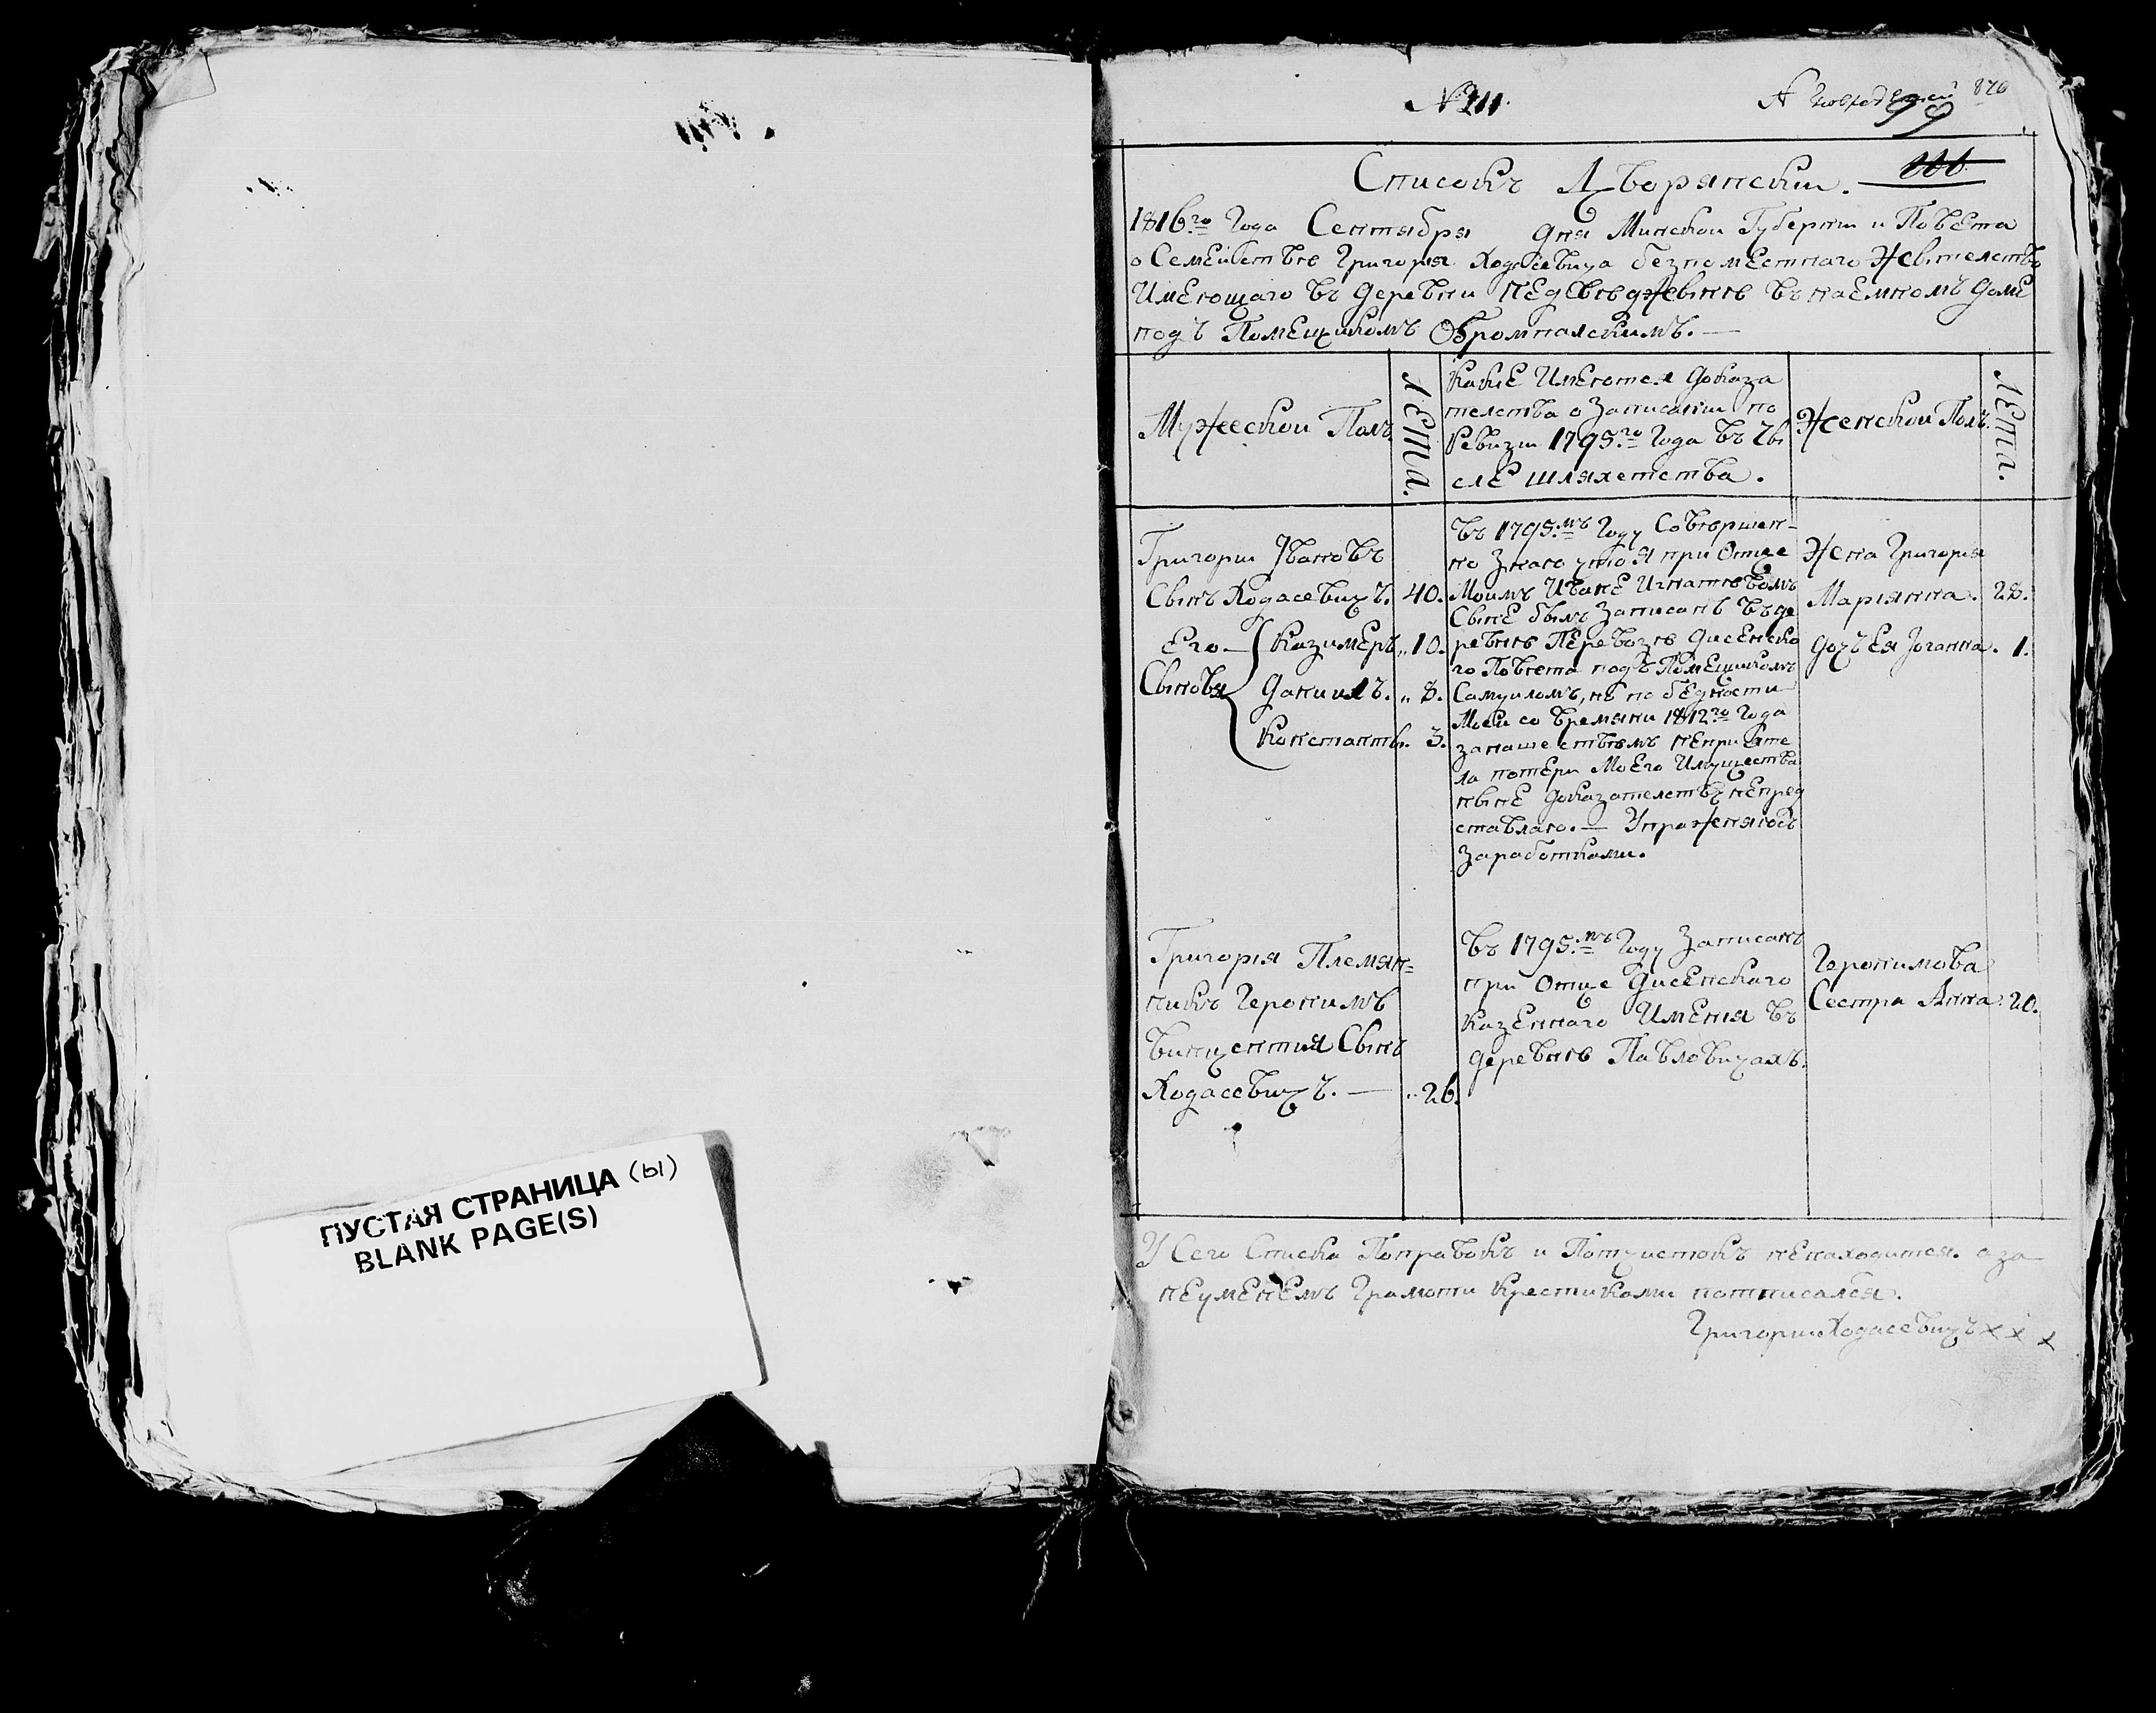 ПУСТАЯ СТРАНИЦА (ы)
BLANK PAGE(S)
826
99
Списокъ Дворянскии.
1816го Года Сентября дня Минскои Губернии и Повета
о Семеиствѣ Григорія Ходасевича безпоместнаго Жителство
Имеющаго въ деревни въ наемномъ доме
подъ Помещикомъ
Мужескои Полъ
Лета.
Какие Имеются доказа
телства о Записании по
Ревизии 1795го Года въ Чи
сле шляхетства.
Женскои Полъ.
Лета.
Григории Івановъ
Сынъ Ходасевичъ. 40.
Его Казимеръ 10.
Сыновья Даниилъ. 8.
Константы. 3.
въ 1795мъ Году Совершен-
но Знаю что я при Отце
Моимъ Иване Игнатьевомъ
Сыне былъ Записанъ въ де
ревнѣ Перевозѣ Дисенско
го Повѣта подъ Помещикомъ
Самуиломъ, но по бедности
Моеи со времяни 1812го Года
за нашествіемъ неприяте
ля потери Моего Имущества
ныне доказателствъ непред
ставляю. — Упражняюсъ
Заработками.
Жена Григорія
Маріянна. 28.
дочъ Ея Іоганна. 1.
Григорія Племян=
никъ Геронимъ
Винцентия Сынъ
Ходасевичъ. — 26.
въ 1795мъ Году Записанъ
при Отце Дисенскаго
Казеннаго Имения въ
деревнѣ Павловичахъ.
Геронимова
Сестра Анна. 20.
У Сего Списка Поправокъ и Потчистокъ ненаходится. а за
неуменемъ Грамоти Крестиками потписался.
Григории Ходасевичъ х х х